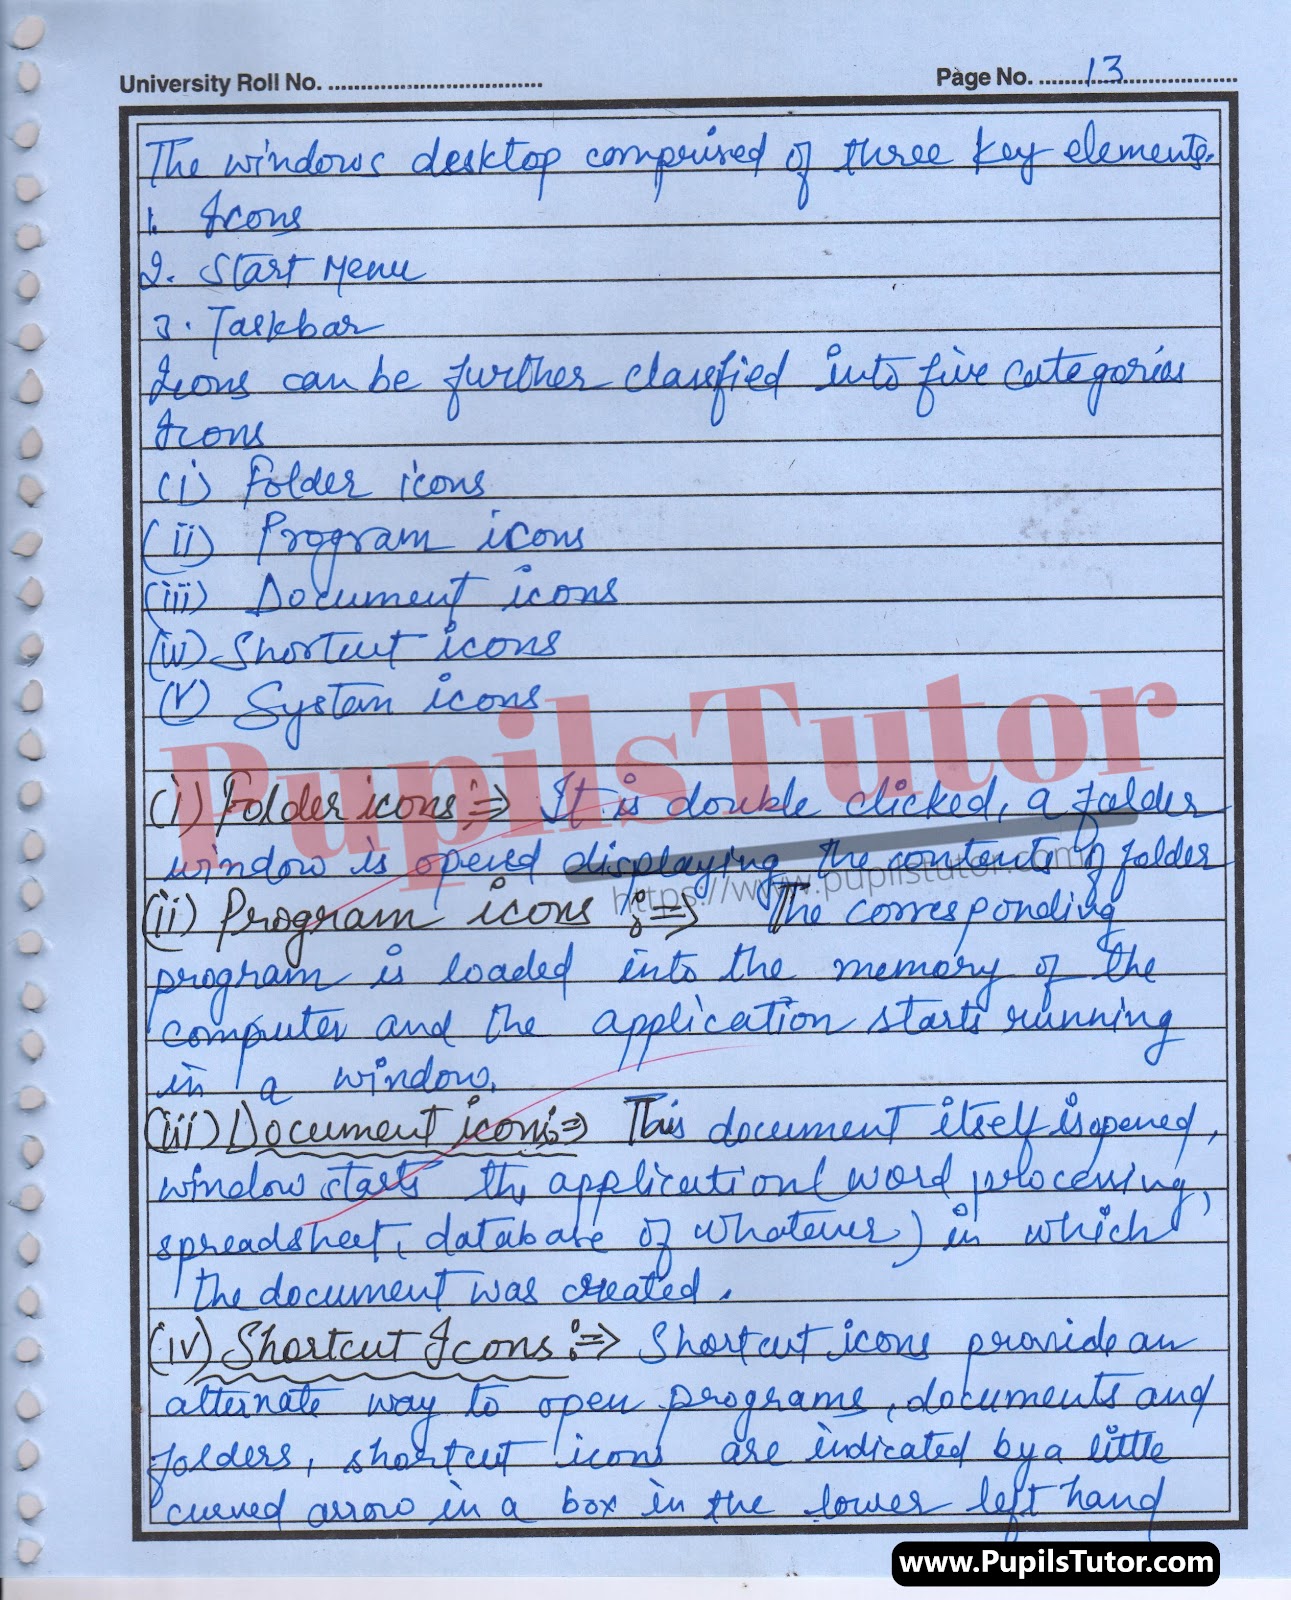 University Roll No. ................................ Page No. ........13................
The windows desktop comprised of three key elements.
1. Icons
2. Start Menu
3. Taskbar
Icons can be further classified into five categories
Icons
(i) Folder icons
(ii) Program icons
(iii) Document icons
(iv) Shortcut icons
(v) System icons
PupilsTutor
(i) Folder icons :⇒ It is double clicked, a folder
window is opened displaying the contents of folder
https://www.pupilstutor.com
(ii) Program icons :⇒ The corresponding
program is loaded into the memory of the
computer and the application starts running
in a window.
(iii) Document icons:⇒ This document itself is opened,
window starts the application (word processing,
spreadsheet, database of whatever) in which
the document was created.
(iv) Shortcut Icons :⇒ Shortcut icons provide an
alternate way to open programs, documents and
folders, shortcut icons are indicated by a little
curved arrow in a box in the lower left hand
www.PupilsTutor.com